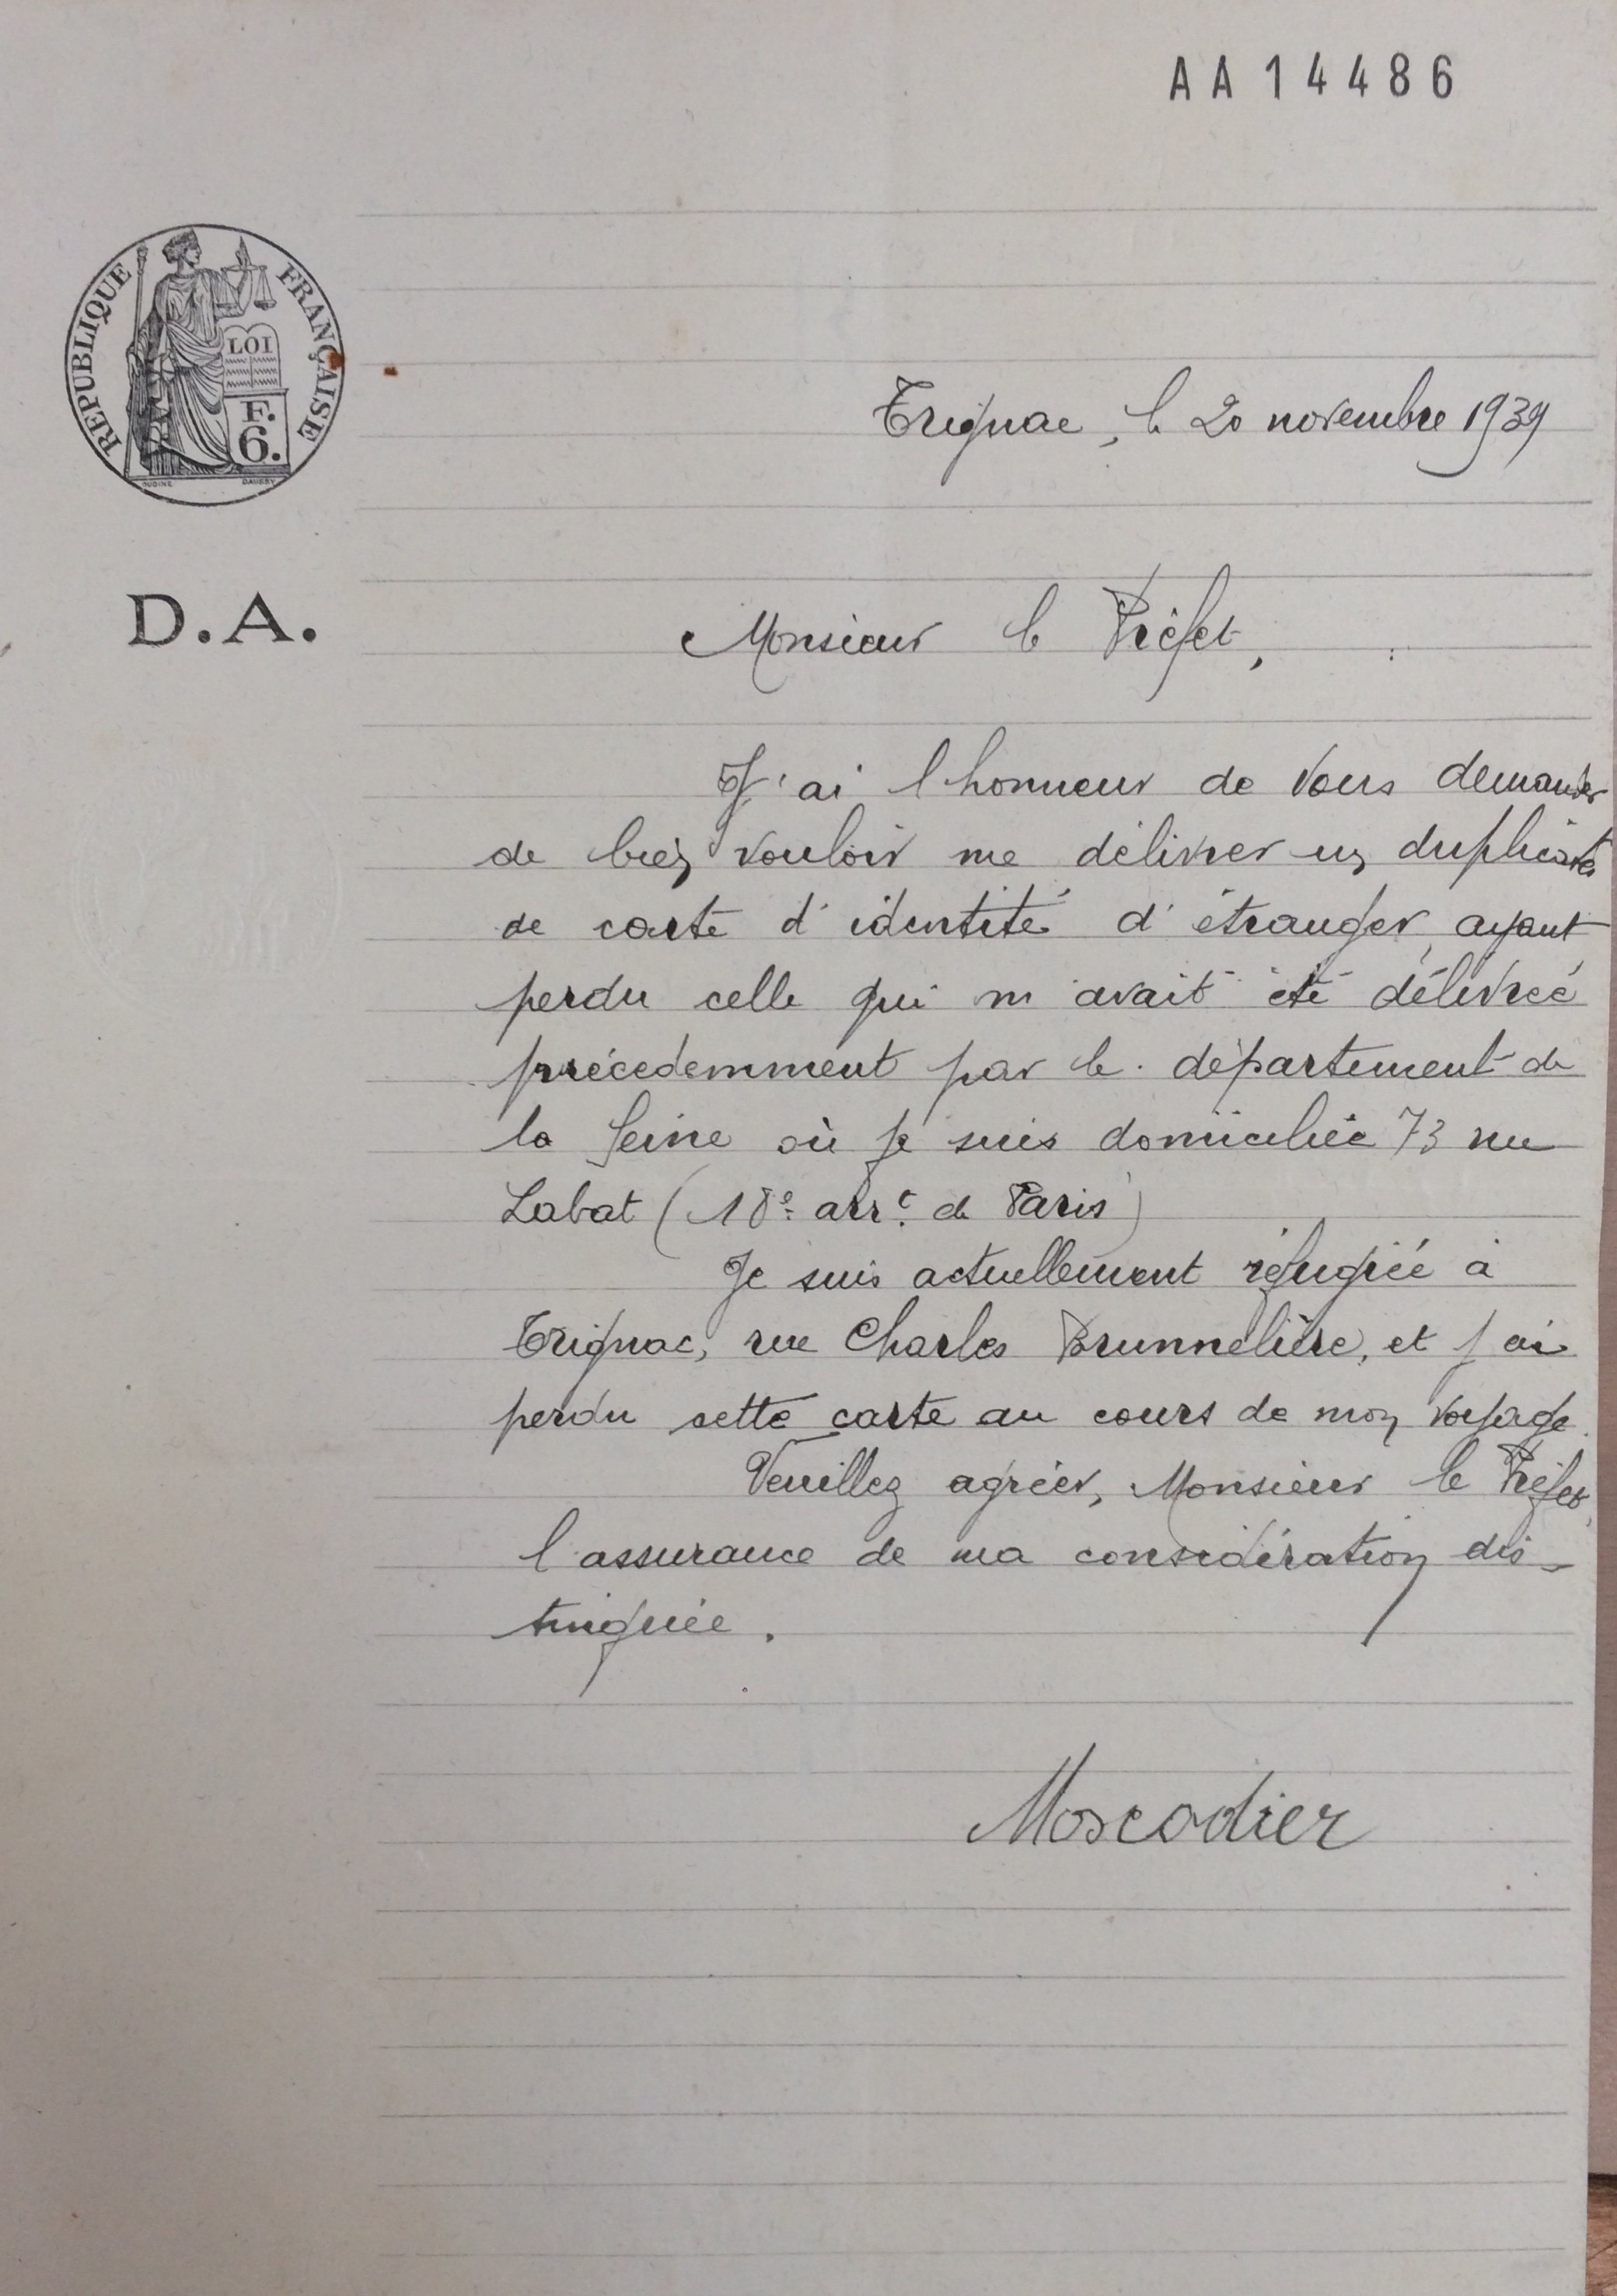 AA14486
REPUBLIQUE FRANÇAISE
LOI
F.
6.
OUDINÉ
D.A.
Trignac, le 20 novembre 1939
Monsieur le Préfet,
J'ai l'honneur de vous demander
de bien vouloir me délivrer un duplicata
de carte d'identité d'étranger, ayant
perdu celle qui m'avait été délivrée
précédemment par le département de
la Seine où je suis domiciliée 73 rue
Labat (18e arrt de Paris)
Je suis actuellement réfugiée à
Trignac, rue Charles Brunnelière, et j'ai
perdu cette carte au cours de mon voyage.
Veuillez agréer, Monsieur le Préfet,
l'assurance de ma considération dis-
tinguée.
Moscodier